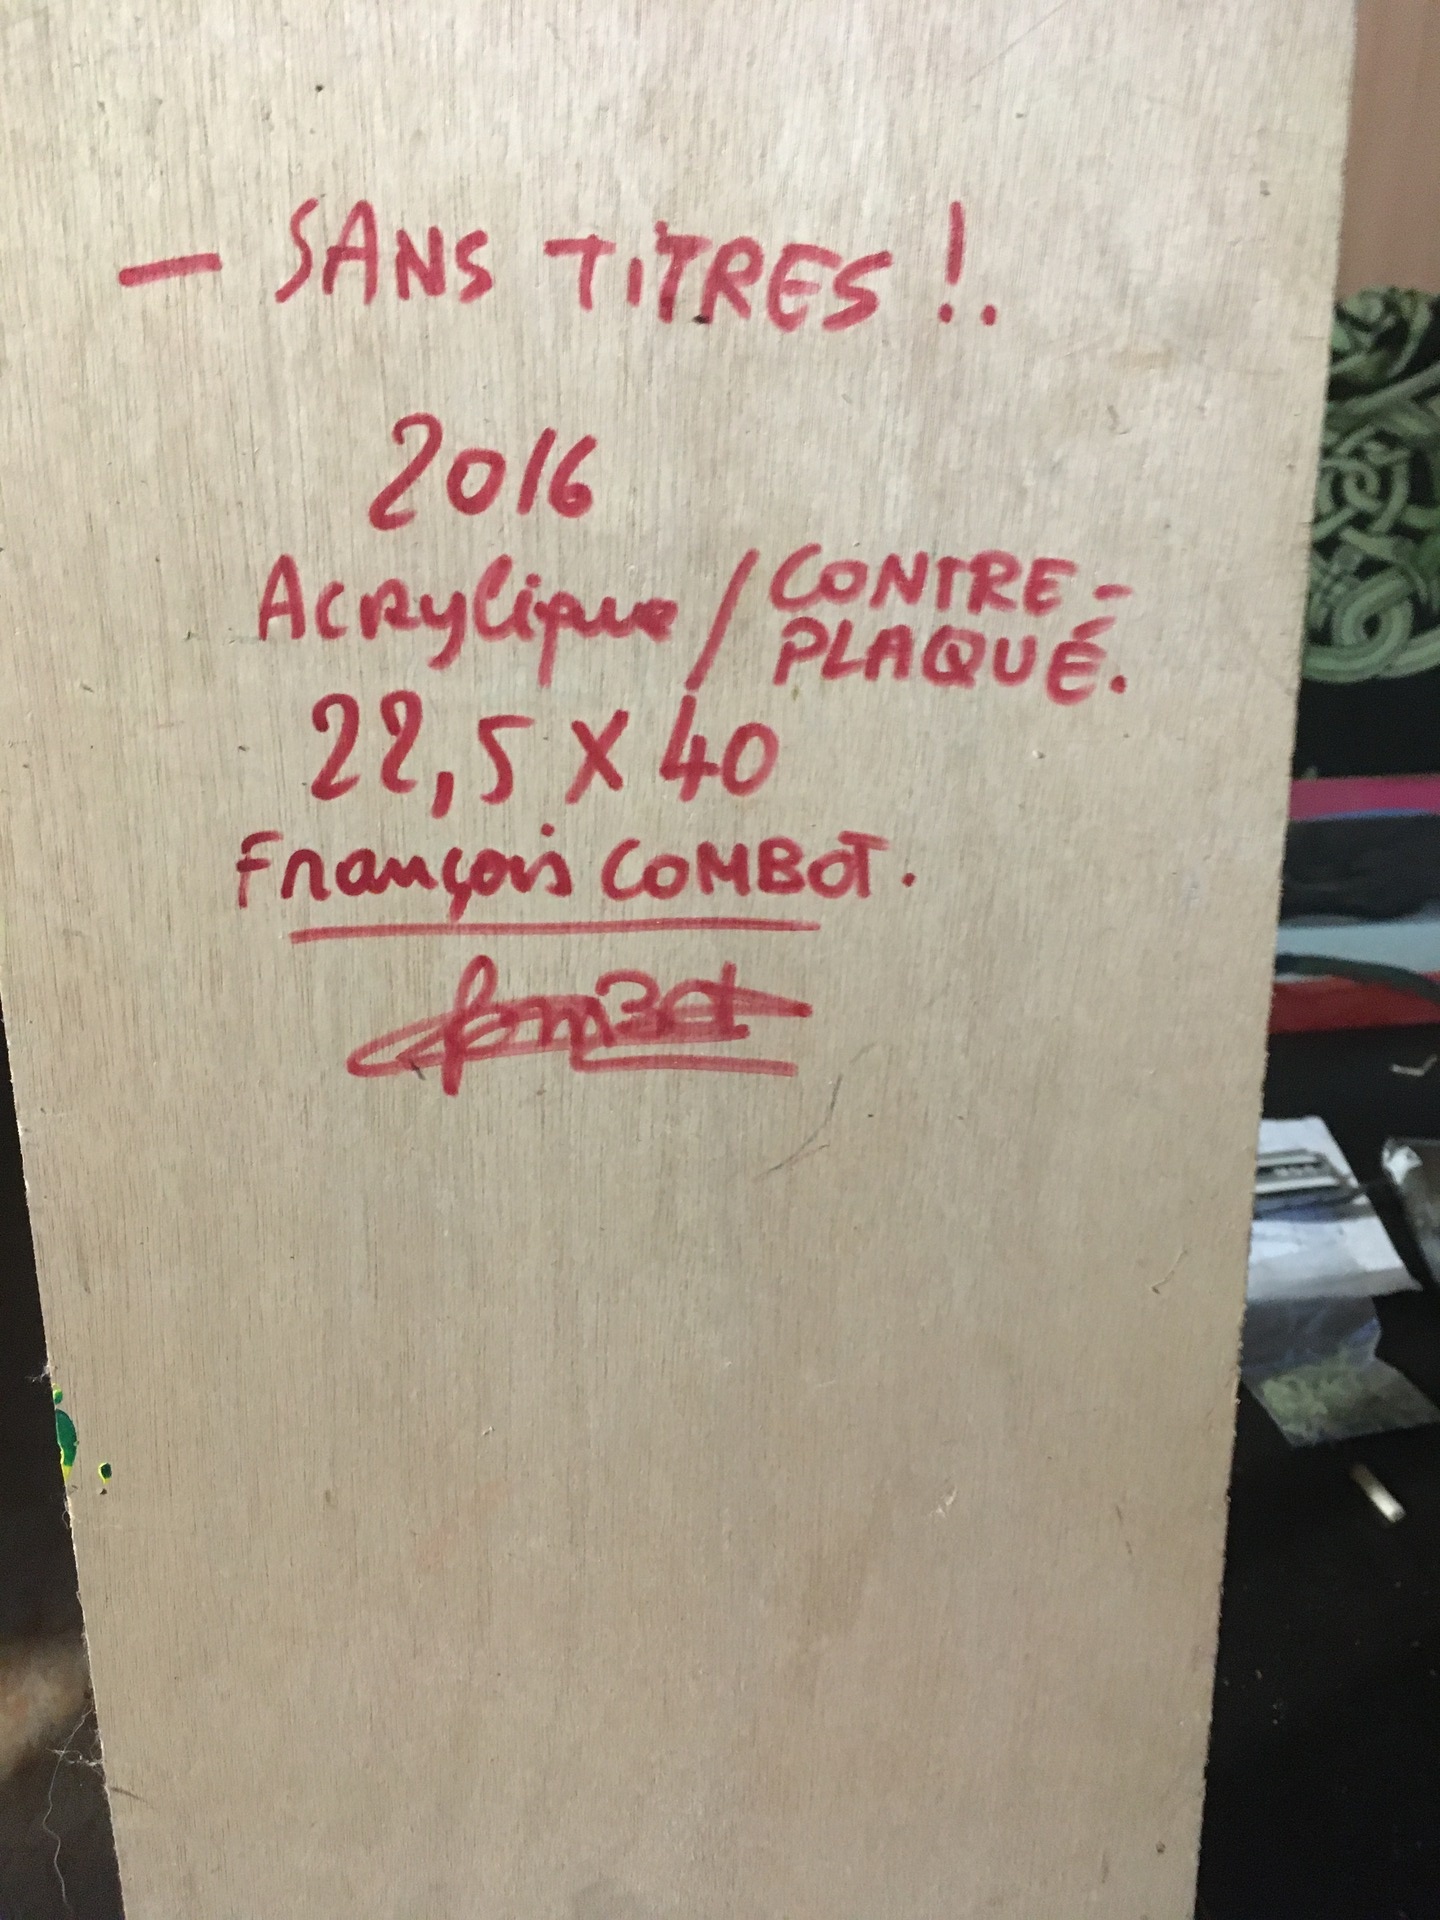 — SANS TITRES !.
2016
Acrylique / CONTRE-
PLAQUÉ.
22,5 X 40
François COMBOT.